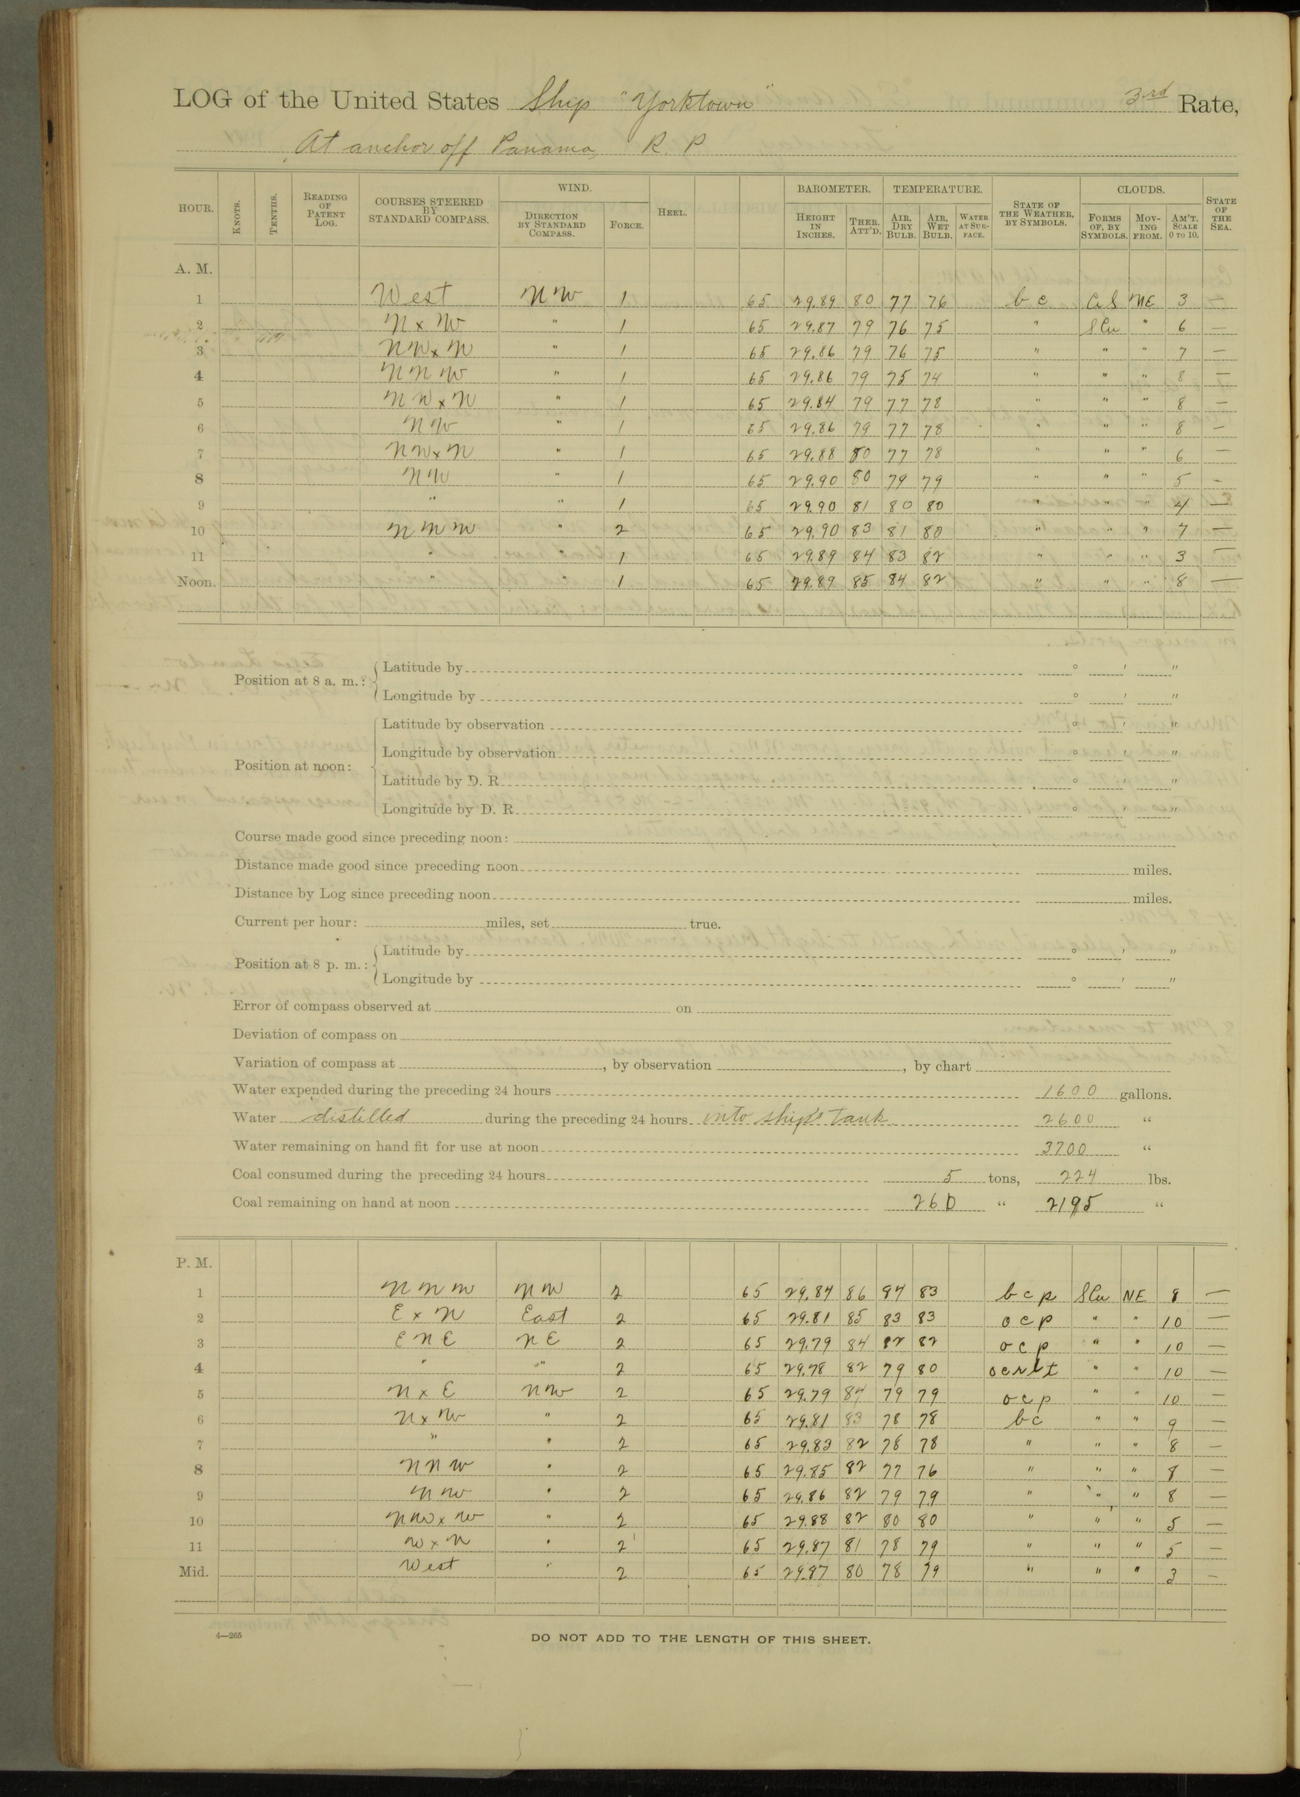 LOG of the United States Ship "Yorktown" 3rd Rate,
At anchor off Panama, R. P.
HOUR. KNOTS. TENTHS. READING OF PATENT LOG. COURSES STEERED BY STANDARD COMPASS. WIND. DIRECTION BY STANDARD COMPASS. FORCE. HEEL. BAROMETER. HEIGHT IN INCHES. THER. ATT'D. TEMPERATURE. AIR, DRY BULB. AIR, WET BULB. WATER AT SURFACE. STATE OF THE WEATHER, BY SYMBOLS. CLOUDS. FORMS OF, BY SYMBOLS. MOVING FROM. AM'T. SCALE 0 TO 10. STATE OF THE SEA.
A. M.
1 West NW 1 65 29.89 80 77 76 b c NE 3
2 N x W " 1 65 29.87 79 76 75 " SCu " 6 —
3 NW x N " 1 65 29.86 79 76 75 " " " 7 —
4 NNW " 1 65 29.86 79 75 74 " " " 8 —
5 NW x N " 1 65 29.84 79 77 78 " " " 8 —
6 NW " 1 65 29.86 79 77 78 " " " 8 —
7 NW x N " 1 65 29.88 80 77 78 " " " 6 —
8 NW " 1 65 29.90 80 79 79 " " " 5 -
9 " " 1 65 29.90 81 80 80 " " " 4 —
10 NNW " 2 65 29.90 83 81 80 " " " 7 —
11 " " 1 65 29.89 84 83 82 " " " 3 —
Noon. " " 1 65 29.89 85 84 82 " " " 8 —
Position at 8 a. m.: Latitude by ° ' "
Longitude by ° ' "
Position at noon: Latitude by observation ° ' "
Longitude by observation ° ' "
Latitude by D. R ° ' "
Longitude by D. R ° ' "
Course made good since preceding noon:
Distance made good since preceding noon miles.
Distance by Log since preceding noon miles.
Current per hour: miles, set true.
Position at 8 p. m.: Latitude by ° ' "
Longitude by ° ' "
Error of compass observed at on
Deviation of compass on
Variation of compass at , by observation , by chart
Water expended during the preceding 24 hours 1600 gallons.
Water distilled during the preceding 24 hours into ship's tank 2600 "
Water remaining on hand fit for use at noon 3700 "
Coal consumed during the preceding 24 hours 5 tons, 224 lbs.
Coal remaining on hand at noon 260 " 2195 "
P. M.
1 NNW NW 2 65 29.84 86 84 83 b c p SCu NE 8 —
2 E x N East 2 65 29.81 85 83 83 o c p " " 10 —
3 ENE NE 2 65 29.79 84 82 82 o c p " " 10 —
4 " " 2 65 29.78 82 79 80 " " 10 —
5 N x E NW 2 65 29.79 84 79 79 o c p " " 10 —
6 N x W " 2 65 29.81 83 78 78 b c " " 9 —
7 " " 2 65 29.83 82 78 78 " " " 8 —
8 NNW " 2 65 29.85 82 77 76 " " " 8 —
9 NW " 2 65 29.86 82 79 79 " " " 8 —
10 NW x W " 2 65 29.88 82 80 80 " " " 5 —
11 W x N " 2 65 29.87 81 78 79 " " " 5 —
Mid. West " 2 65 29.87 80 78 79 " " " 3 —
4—265
DO NOT ADD TO THE LENGTH OF THIS SHEET.